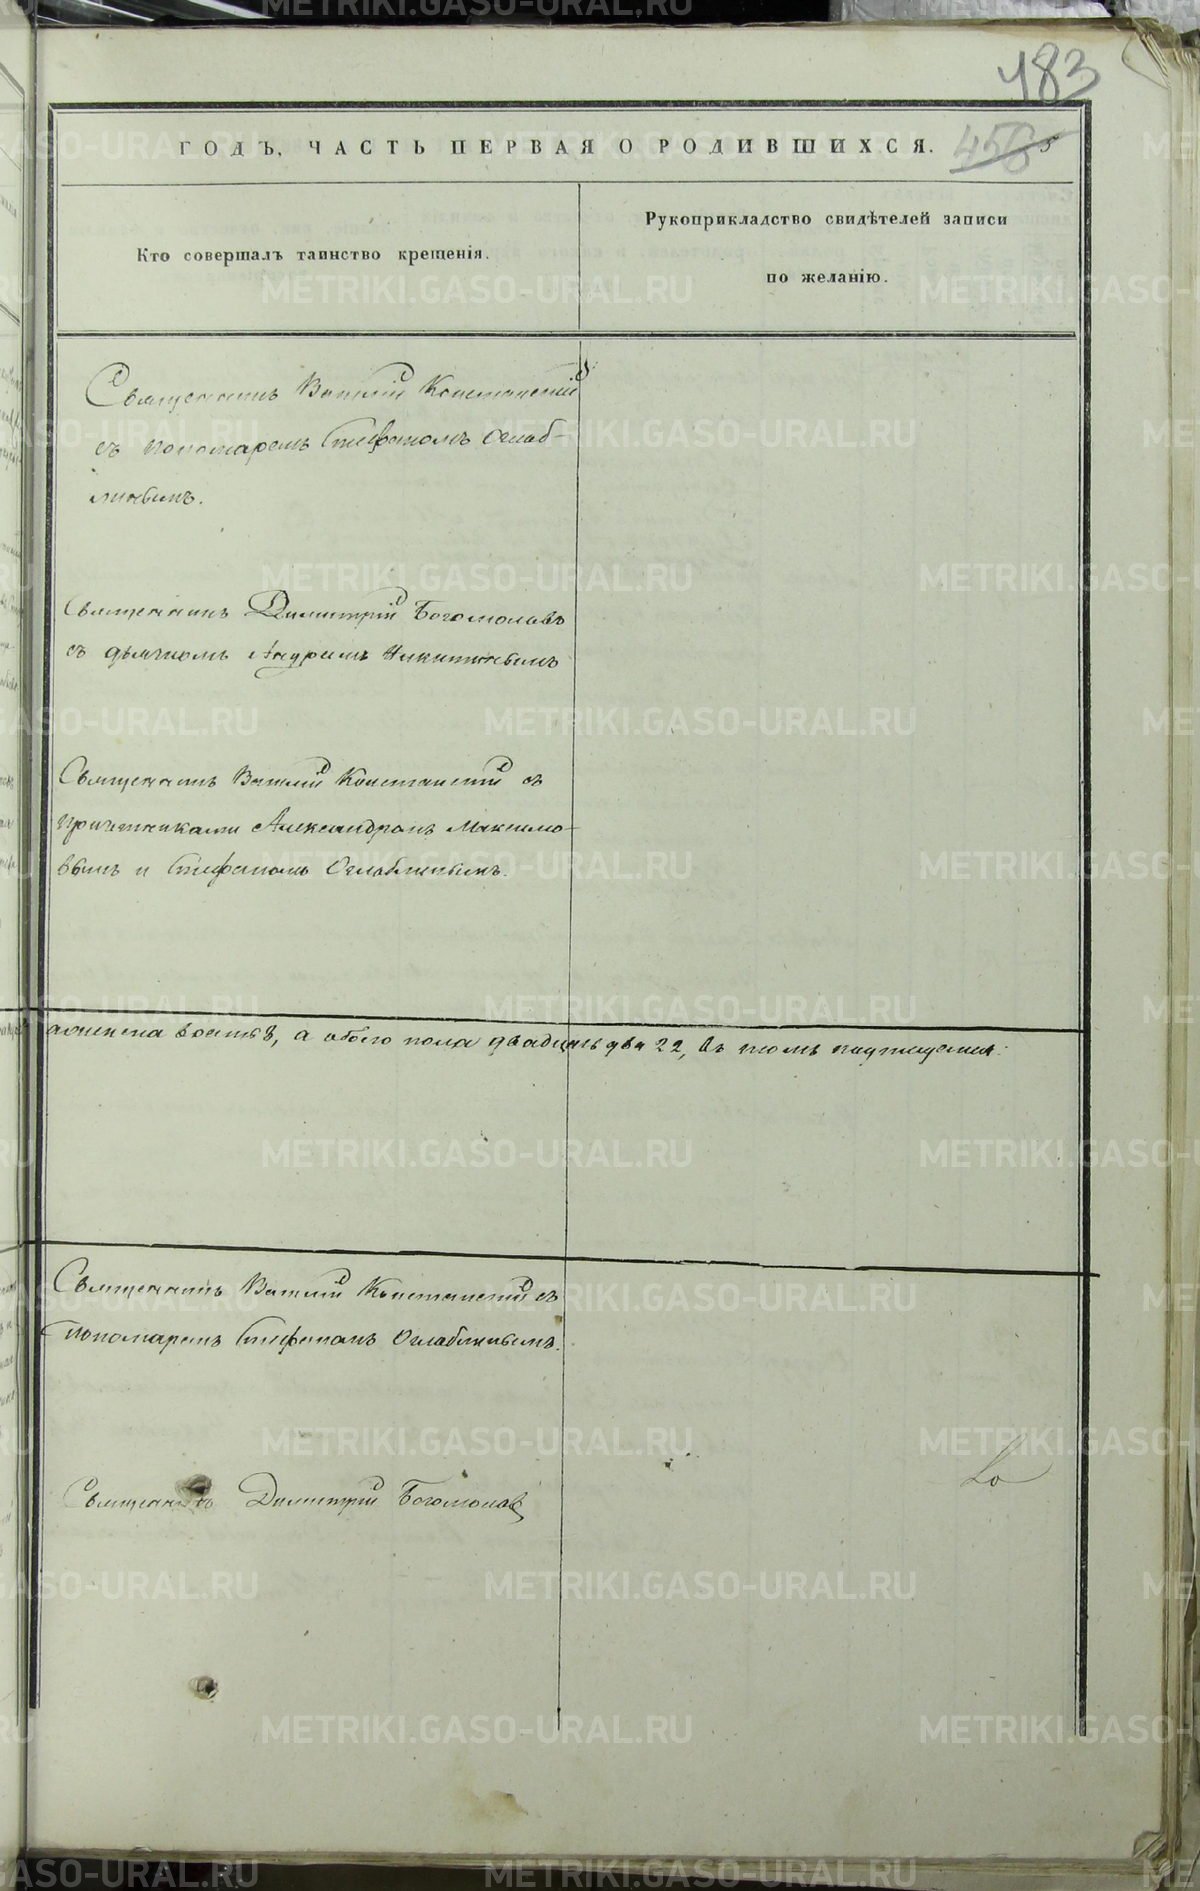 483
ГОДЪ, ЧАСТЬ ПЕРВАЯ О РОДИВШИХСЯ. 456 5
Кто совершалъ таинство крещенія.
Рукоприкладство свидѣтелей записи
по желанію.
Священникъ Василій Констанскій
съ пономаремъ Стефаномъ Оглаб-
линымъ.
Священникъ Димитрій Богомоловъ
съ дьячкомъ Андреемъ Никитинымъ
Священникъ Василій Констанскій съ
причетниками Александромъ Максимо-
вымъ и Стефаномъ Оглаблинымъ.
а женска восемь 8, а обоего пола двадцать два 22, въ томъ
Священникъ Василій Констанскій съ
пономаремъ Стефаномъ Оглаблинымъ.
Священникъ Димитрій Богомоловъ
METRIKI.GASO-URAL.RU